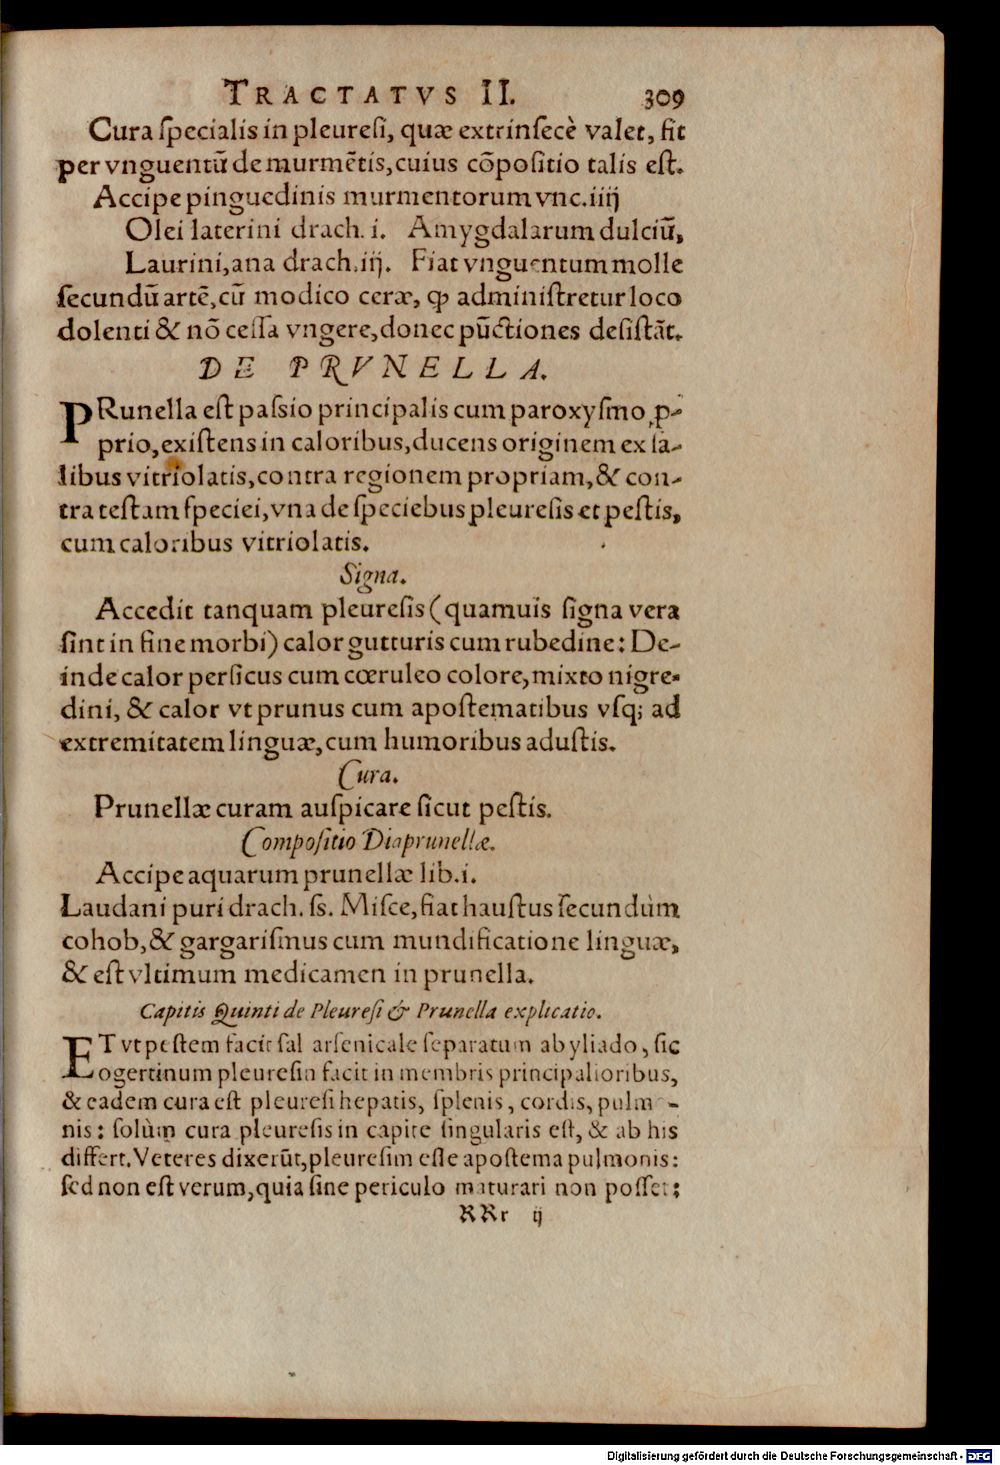 TRACTATVS II. 309
Cura ſpecialis in pleureſi, quæ extrinſecè valet, fit
per vnguentū de murmētis, cuius cōpoſitio talis eſt.
Accipe pinguedinis murmentorum vnc. iiij
Olei laterini drach. i. Amygdalarum dulciū,
Laurini, ana drach. iij. Fiat vnguentum molle
ſecundū artē, cū modico ceræ, ꝙ adminiſtretur loco
dolenti & nō ceſſa vngere, donec pūctiones deſiſtāt.
DE PRVNELLA.
PRunella eſt paſsio principalis cum paroxyſmo ꝓ-
prio, exiſtens in caloribus, ducens originem ex ſa-
libus vitriolatis, contra regionem propriam, & con-
tra teſtam ſpeciei, vna de ſpeciebus pleureſis et peſtis,
cum caloribus vitriolatis.
Signa.
Accedit tanquam pleureſis (quamuis ſigna vera
ſint in fine morbi) calor gutturis cum rubedine: De-
inde calor perſicus cum cœruleo colore, mixto nigre-
dini, & calor vt prunus cum apoſtematibus vſq; ad
extremitatem linguæ, cum humoribus aduſtis.
Cura.
Prunellæ curam auſpicare ſicut peſtis.
Compoſitio Diaprunellæ.
Accipe aquarum prunellæ lib. i.
Laudani puri drach. ſs. Miſce, fiat hauſtus ſecundùm
cohob, & gargariſmus cum mundificatione linguæ,
& eſt vltimum medicamen in prunella.
Capitis Quinti de Pleureſi & Prunella explicatio.
ET vt peſtem facit ſal arſenicale ſeparatum ab yliado, ſic
ogertinum pleureſin facit in membris principalioribus,
& eadem cura eſt pleureſi hepatis, ſplenis, cordis, pulmo-
nis: ſolùm cura pleureſis in capite ſingularis eſt, & ab his
differt. Veteres dixerūt, pleureſim eſſe apoſtema pulmonis:
ſed non eſt verum, quia ſine periculo maturari non poſſet:
RRr ij
Digitalisierung gefördert durch die Deutsche Forschungsgemeinschaft - DFG